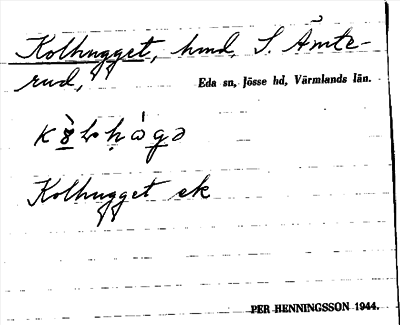 Kolhugget, hmd, S. Ämte-
rud,
Eda sn, Jösse hd, Värmlands län.
Kolhugget ek
PER HENNINGSSON 1944.